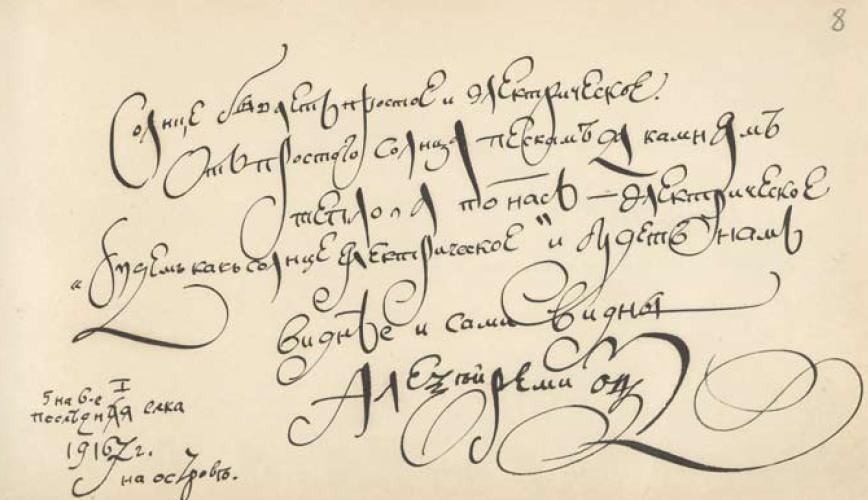 8
Солнце бываетъ простое и электрическое.
Отъ простого солнца пескамъ да камнямъ
тепло а по насъ — электрическое
„Будемъ какъ солнце электрическое“ и будетъ намъ
виднѣе и сами видны
Алексѣй Ремизовъ
5 на 6-е I
послѣдняя елка
1917 г.
на островѣ.